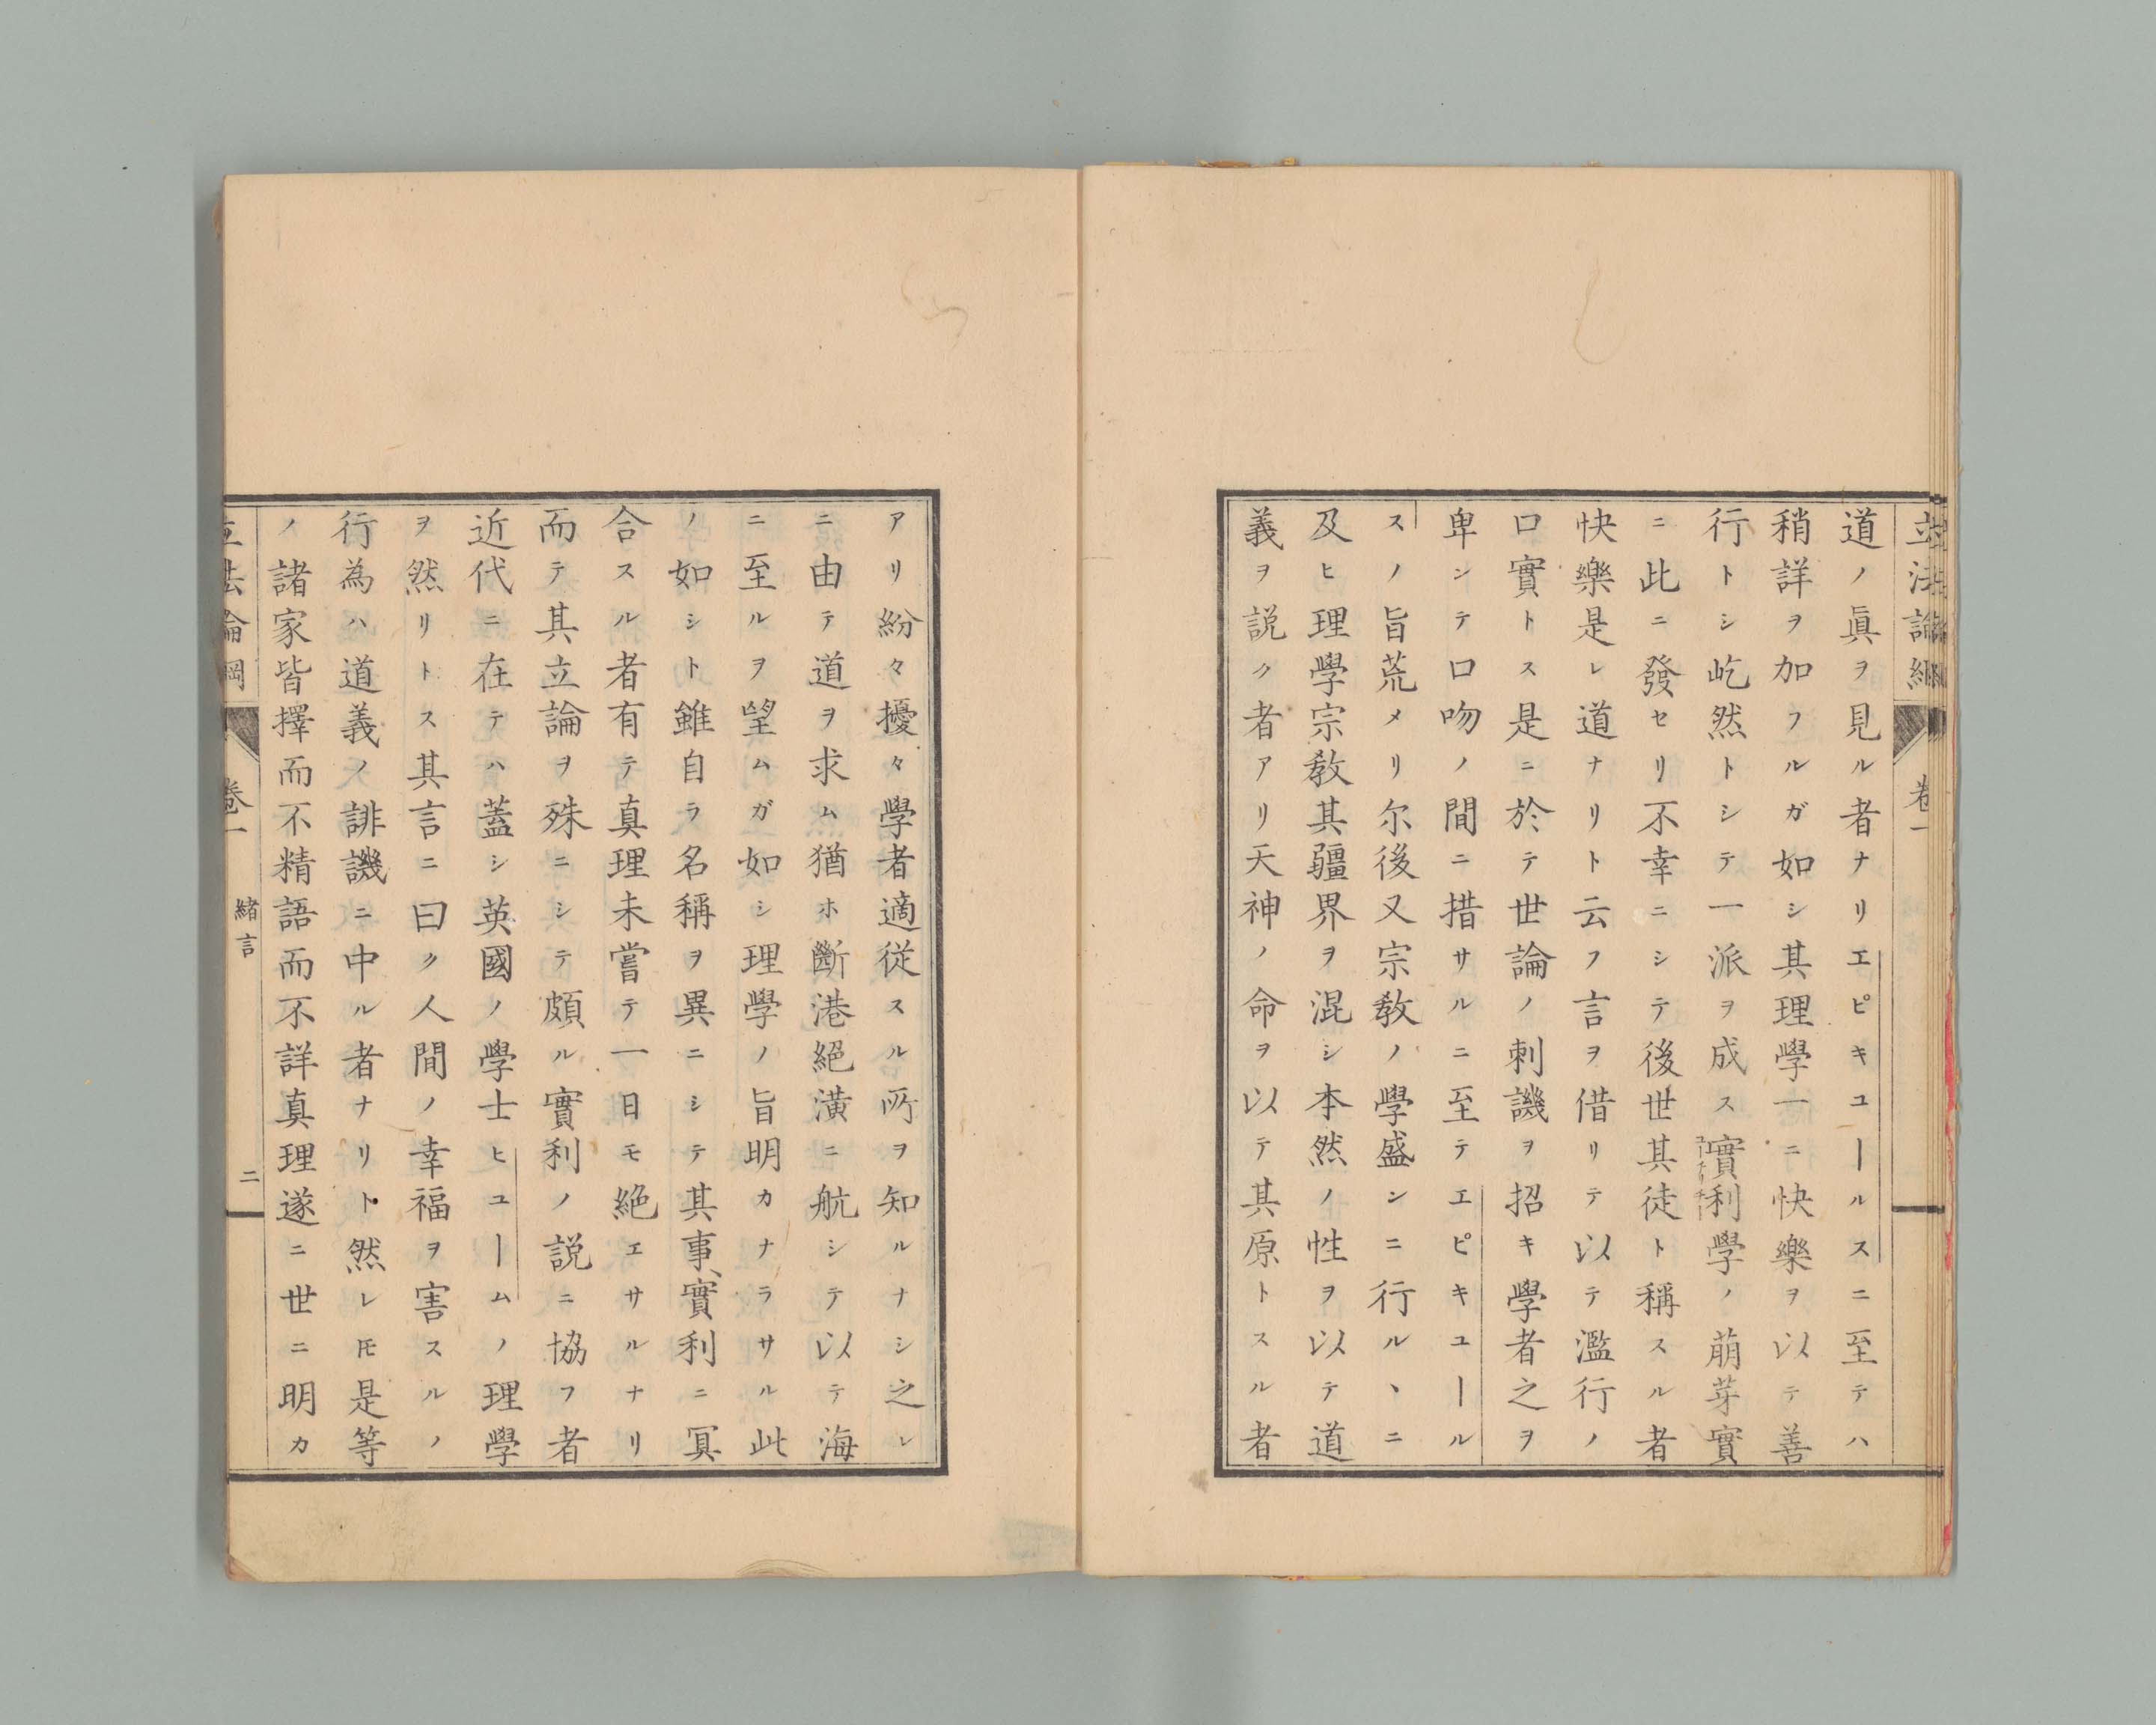 立法論綱
卷一
道ノ眞ヲ見ル者ナリエピキユールスニ至テハ
稍詳ヲ加フルガ如シ其理學一ニ快樂ヲ以テ善
行トシ屹然トシテ一派ヲ成ス實利學ノ萠芽實
ニ此ニ發セリ不幸ニシテ後世其徒ト稱スル者
快樂是レ道ナリト云フ言ヲ借リテ以テ濫行ノ
口實トス是ニ於テ世論ノ刺譏ヲ招キ學者之ヲ
卑シテ口吻ノ間ニ措サルニ至テエピキユール
スノ旨荒メリ尓後又宗敎ノ學盛ンニ行ルヽニ
及ヒ理學宗敎其疆界ヲ混シ本然ノ性ヲ以テ道
義ヲ説ク者アリ天神ノ命ヲ以テ其原トスル者
アリ紛々擾々學者適從スル所ヲ知ルナシ之レ
ニ由テ道ヲ求ム猶ホ斷港絕潢ニ航シテ以テ海
ニ至ルヲ望ムガ如シ理學ノ旨明カナラサル此
ノ如シト雖自ラ名稱ヲ異ニシテ其事實利ニ冥
合スル者有テ真理未嘗テ一日モ絶エサルナリ
而テ其立論ヲ殊ニシテ頗ル實利ノ説ニ協フ者
近代ニ在テハ蓋シ英國ノ學士ヒユームノ理學
ヲ然リトス其言ニ曰ク人間ノ幸福ヲ害スルノ
行為ハ道義ノ誹譏ニ中ル者ナリト然レ𪜈是等
ノ諸家皆擇而不精語而不詳真理遂ニ世ニ明カ
立法論綱
卷一
緖言
二